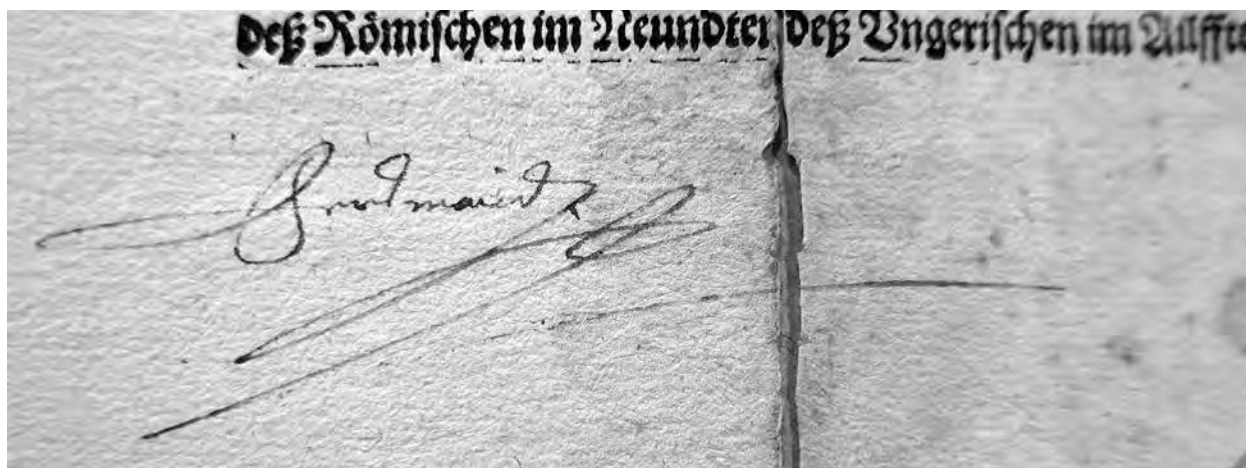 deß Römischen im Neundten deß Vngerischen im Ailffte
Ferdinand